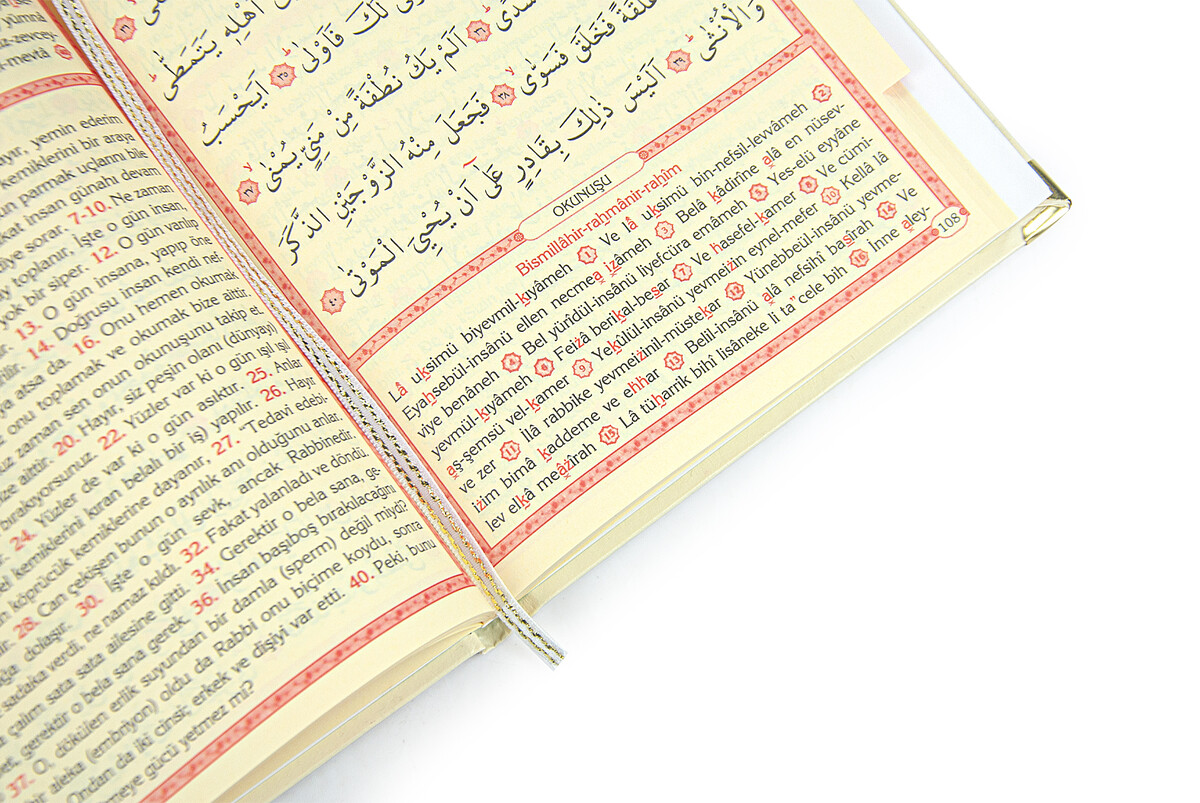 yümna
z-zevcey-
-mevtâ
ayır, yemin ederim
kemiklerini bir araya
un parmak uçlarını bile
akat insan günahı devam
diye sorar. 7-10. Ne zaman
toplanır, İşte o gün insan,
yok bir siper. 12. O gün varılıp
13. O gün insana, yapıp öne
14. Doğrusu insan kendi nef-
ya atsa da. 16. Onu hemen okumak
onu toplamak ve okumak bize aittir.
uz zaman sen onun okunuşunu takip et.
ize aittir. 20. Hayır, siz peşin olanı (dünyayı)
bırakıyorsunuz. 22. Yüzler var ki o gün ışıl ışıl
24. Yüzler de var ki o gün asıktır. 25. Anlar
eli kemiklerini kıran belalı bir iş) yapılır. 26. Hayır
köprücük kemiklerine dayanır, 27. “Tedavi edebi-
28. Can çekişen bunun o ayrılık anı olduğunu anlar.
dolaşır. 30. İşte o gün sevk, ancak Rabbinedir.
sadaka verdi, ne namaz kıldı. 32. Fakat yalanladı ve döndü.
çalım sata sata ailesine gitti. 34. Gerektir o bela sana, ge-
gerektir o bela sana gerek. 36. İnsan başıboş bırakılacağını
37. O, dökülen erlik suyundan bir damla (sperm) değil miydi?
bir aleka (embriyon) oldu da Rabbi onu biçime koydu, sonra
Ondan da iki cinsi; erkek ve dişiyi var etti. 40. Peki, bunu
meye gücü yetmez mi?
اَهْلِهِ يَتَمَطّٰىۜ ﴿٣٣﴾
لَكَ فَاَوْلٰىۜ ﴿٣٥﴾ اَيَحْسَبُ
سُدًىۜ ﴿٣٦﴾ اَلَمْ يَكُ نُطْفَةً مِنْ مَنِيٍّ يُمْنٰىۙ ﴿٣٧﴾
عَلَقَةً فَخَلَقَ فَسَوّٰىۙ ﴿٣٨﴾ فَجَعَلَ مِنْهُ الزَّوْجَيْنِ الذَّكَرَ
وَالْاُنْثٰىۜ ﴿٣٩﴾ اَلَيْسَ ذٰلِكَ بِقَادِرٍ عَلٰٓى اَنْ يُحْيِيَ الْمَوْتٰى ﴿٤٠﴾
OKUNUŞU
Bismillâhir-rahmânir-rahîm
Lâ uksimü biyevmil-kıyâmeh 1 Ve lâ uksimü bin-nefsil-levvâmeh 2
Eyahsebül-insânü ellen necmea izâmeh 3 Belâ kâdirîne alâ en nüsev-
viye benâneh 4 Bel yürîdül-insânü liyefcüra emâmeh 5 Yes-elü eyyâne
yevmül-kıyâmeh 6 Feizâ berikal-besar 7 Ve hasefel-kamer 8 Ve cümi-
aş-şemsü vel-kamer 9 Yekülül-insânü yevmeizin eynel-mefer 10 Kellâ lâ
ve zer 11 İlâ rabbike yevmeizinil-müstekar 12 Yünebbeül-insânü yevme-
izim bimâ kaddeme ve ehhar 13 Belil-insânü alâ nefsihî basîrah 14 Ve
lev elkâ meâzîrah 15 Lâ tüharrik bihî lisâneke li ta" cele bih 16 İnne aley-
108